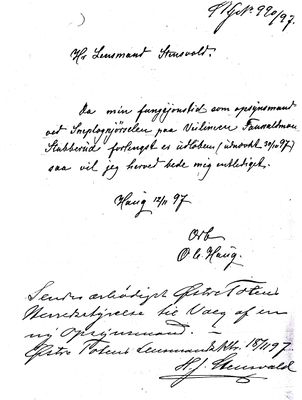 Nr. 990/97.
Hr Lensmand Stensvald.
Da min fungsjonstid som opsynsmand
ved Sneplogkjørselen paa Veilinien
Stubberud forlengst er udløben (udnævnt /97)
saa vil jeg herved bede mig entlediget.
Haug 12/11 97
Ole Haug.
Sendes ærbødigst Østre Totens
Herredsstyrelse til Valg af en
ny opsynsmand. –
Østre Totens Lensmandsktr. 18/11 97.
Stensvald